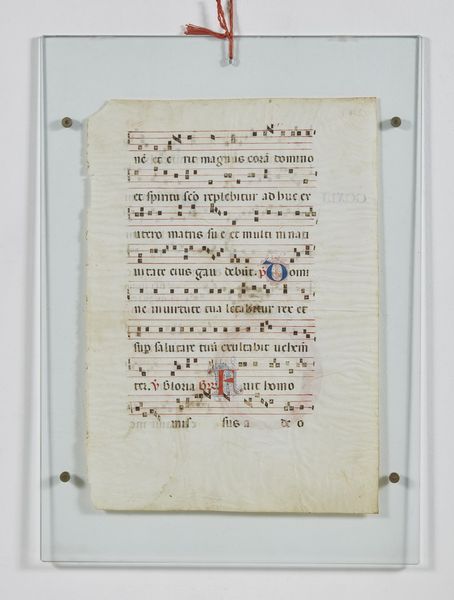 né et erit magnus corā domino
et spiritu sco replebitur adhuc ex
utero matris sue et multi in nati
uitate eius gau debūt. ℣ Domi
ne in uirtute tua letabitur rex et
sup salutare tuū exultabit uehem̄
ter. ℣ Gloria Fuit homo
mis sus a de o